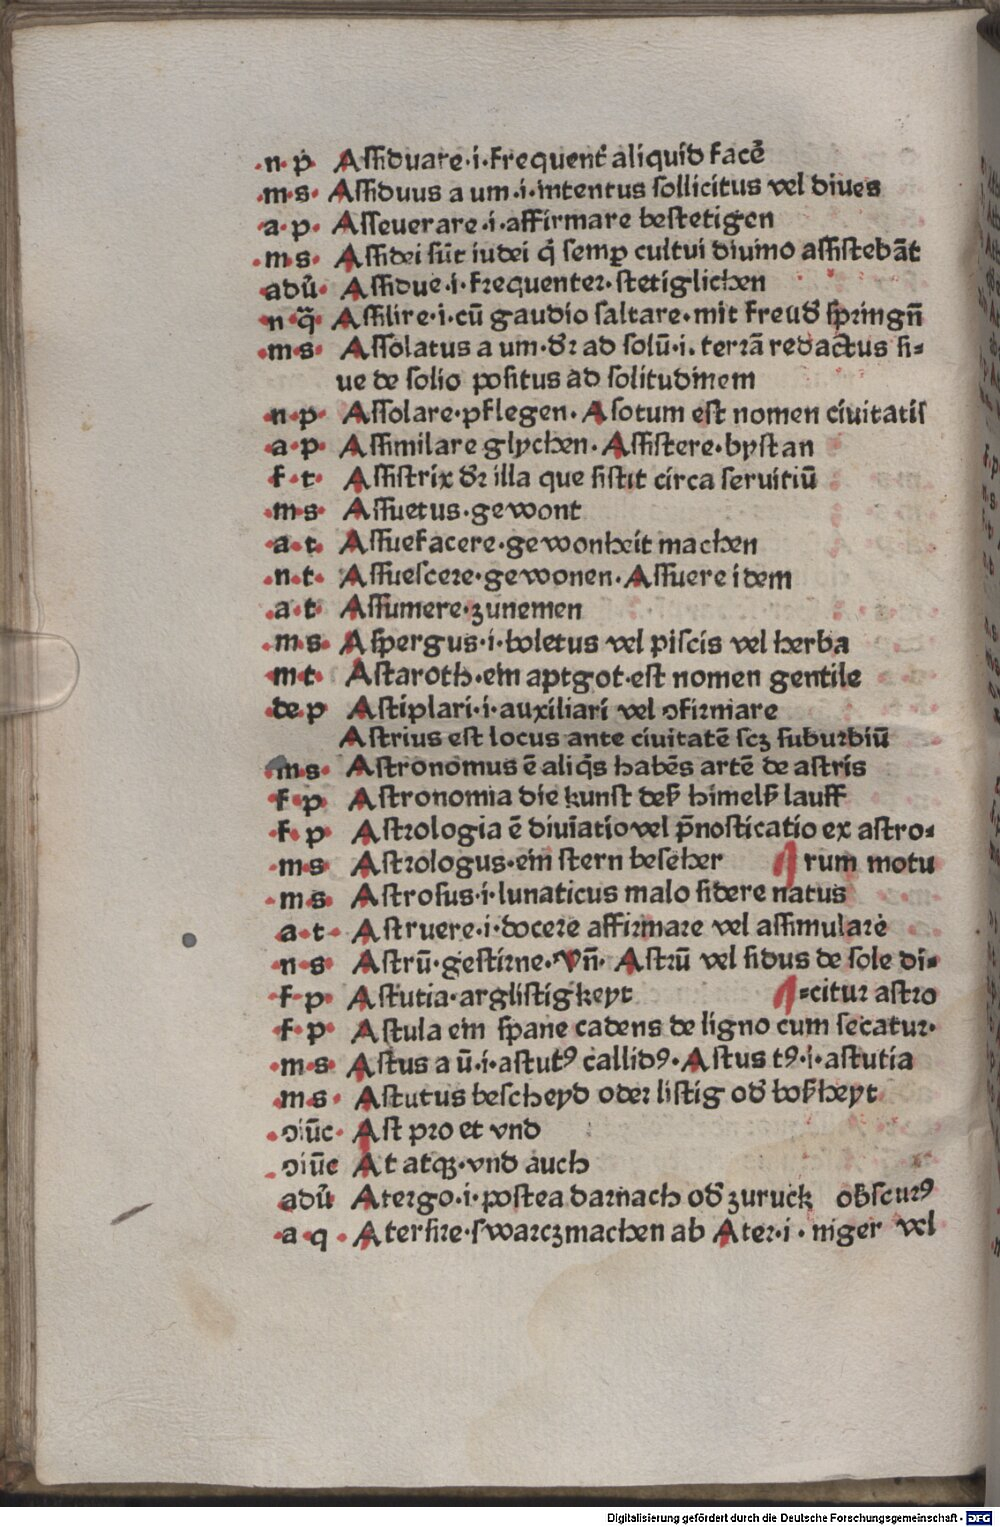 ·n· p· Aſſiduare·i·frequent̄ aliquid facē
·m·s· Aſſiduus a um·i·intentus ſollicitus vel diues
a·p· Aſſeuerare·i·affirmare beſtetigen
·m·s· Aſſidei ſūt iudei q̄ ſemꝑ cultui diuino aſſiſtebāt
adū· Aſſidue·i·frequenter·ſtetiglichen
·n q̄· Aſſilire·i·cū gaudio ſaltare·mit freud̄ ſpringn̄
·m·s· Aſſolatus a um·d̄r ad ſolū·i·terrā redactus ſi⸗
ue de ſolio poſitus ad ſolitudinem
·n·p· Aſſolare·pflegen·Aſotum eſt nomen ciuitatiſ
·a·p Aſſimilare glychen·Aſſiſtere·byſtan
f·t· Aſſiſtrix d̄r illa que ſiſtit circa ſeruitiū
·m·s Aſſuetus·gewont
·a·t· Aſſuefacere·gewonheit machen
·n·t· Aſſueſcere·gewonen·Aſſuere idem
a·t Aſſumere·zunemen
·m·s· Aſpergus·i·boletus vel piſcis vel herba
·m·t· Aſtaroth·ein aptgot·eſt nomen gentile
·de·p Aſtiplari·i·auxiliari vel ɔfirmare
Aſtrius eſt locus ante ciuitatē ſcꝫ ſuburbiū
·m·s· Aſtronomus ē aliq̄s habēs artē de aſtris
f·p Aſtronomia die kunſt deſz himelſz lauff
·f·p Aſtrologia ē diuīatio vel p̄noſticatio ex aſtro⸗
·m·s Aſtrologus·ein ſtern beſeher rum motu
·m·s Aſtroſus·i·lunaticus malo ſidere natus
a·t· Aſtruere·i·docere affirmare vel aſſimulare
n·s Aſtrū·geſtirne·Vn̄·Aſtrū vel ſidus de ſole di⸗
f·p Aſtutia·argliſtigkeyt ⸗citur aſtro
f·p· Aſtula ein ſpane cadens de ligno cum ſecatur·
·m·s Aſtus a ū·i·aſtutꝰ callidꝰ·Aſtus tꝰ·i·aſtutia
·m·s· Aſtutus beſcheyd oder liſtig od̄ boſzheyt
·ɔiūc· Aſt pro et vnd
·ɔiūc At atqꝫ·vnd auch
adū Atergo·i·poſtea darnach od̄ zuruck obſcurꝰ
·a q· Aterſire·ſwarczmachen ab Ater·i·niger vel
Digitalisierung gefördert durch die Deutsche Forschungsgemeinschaft - DFG